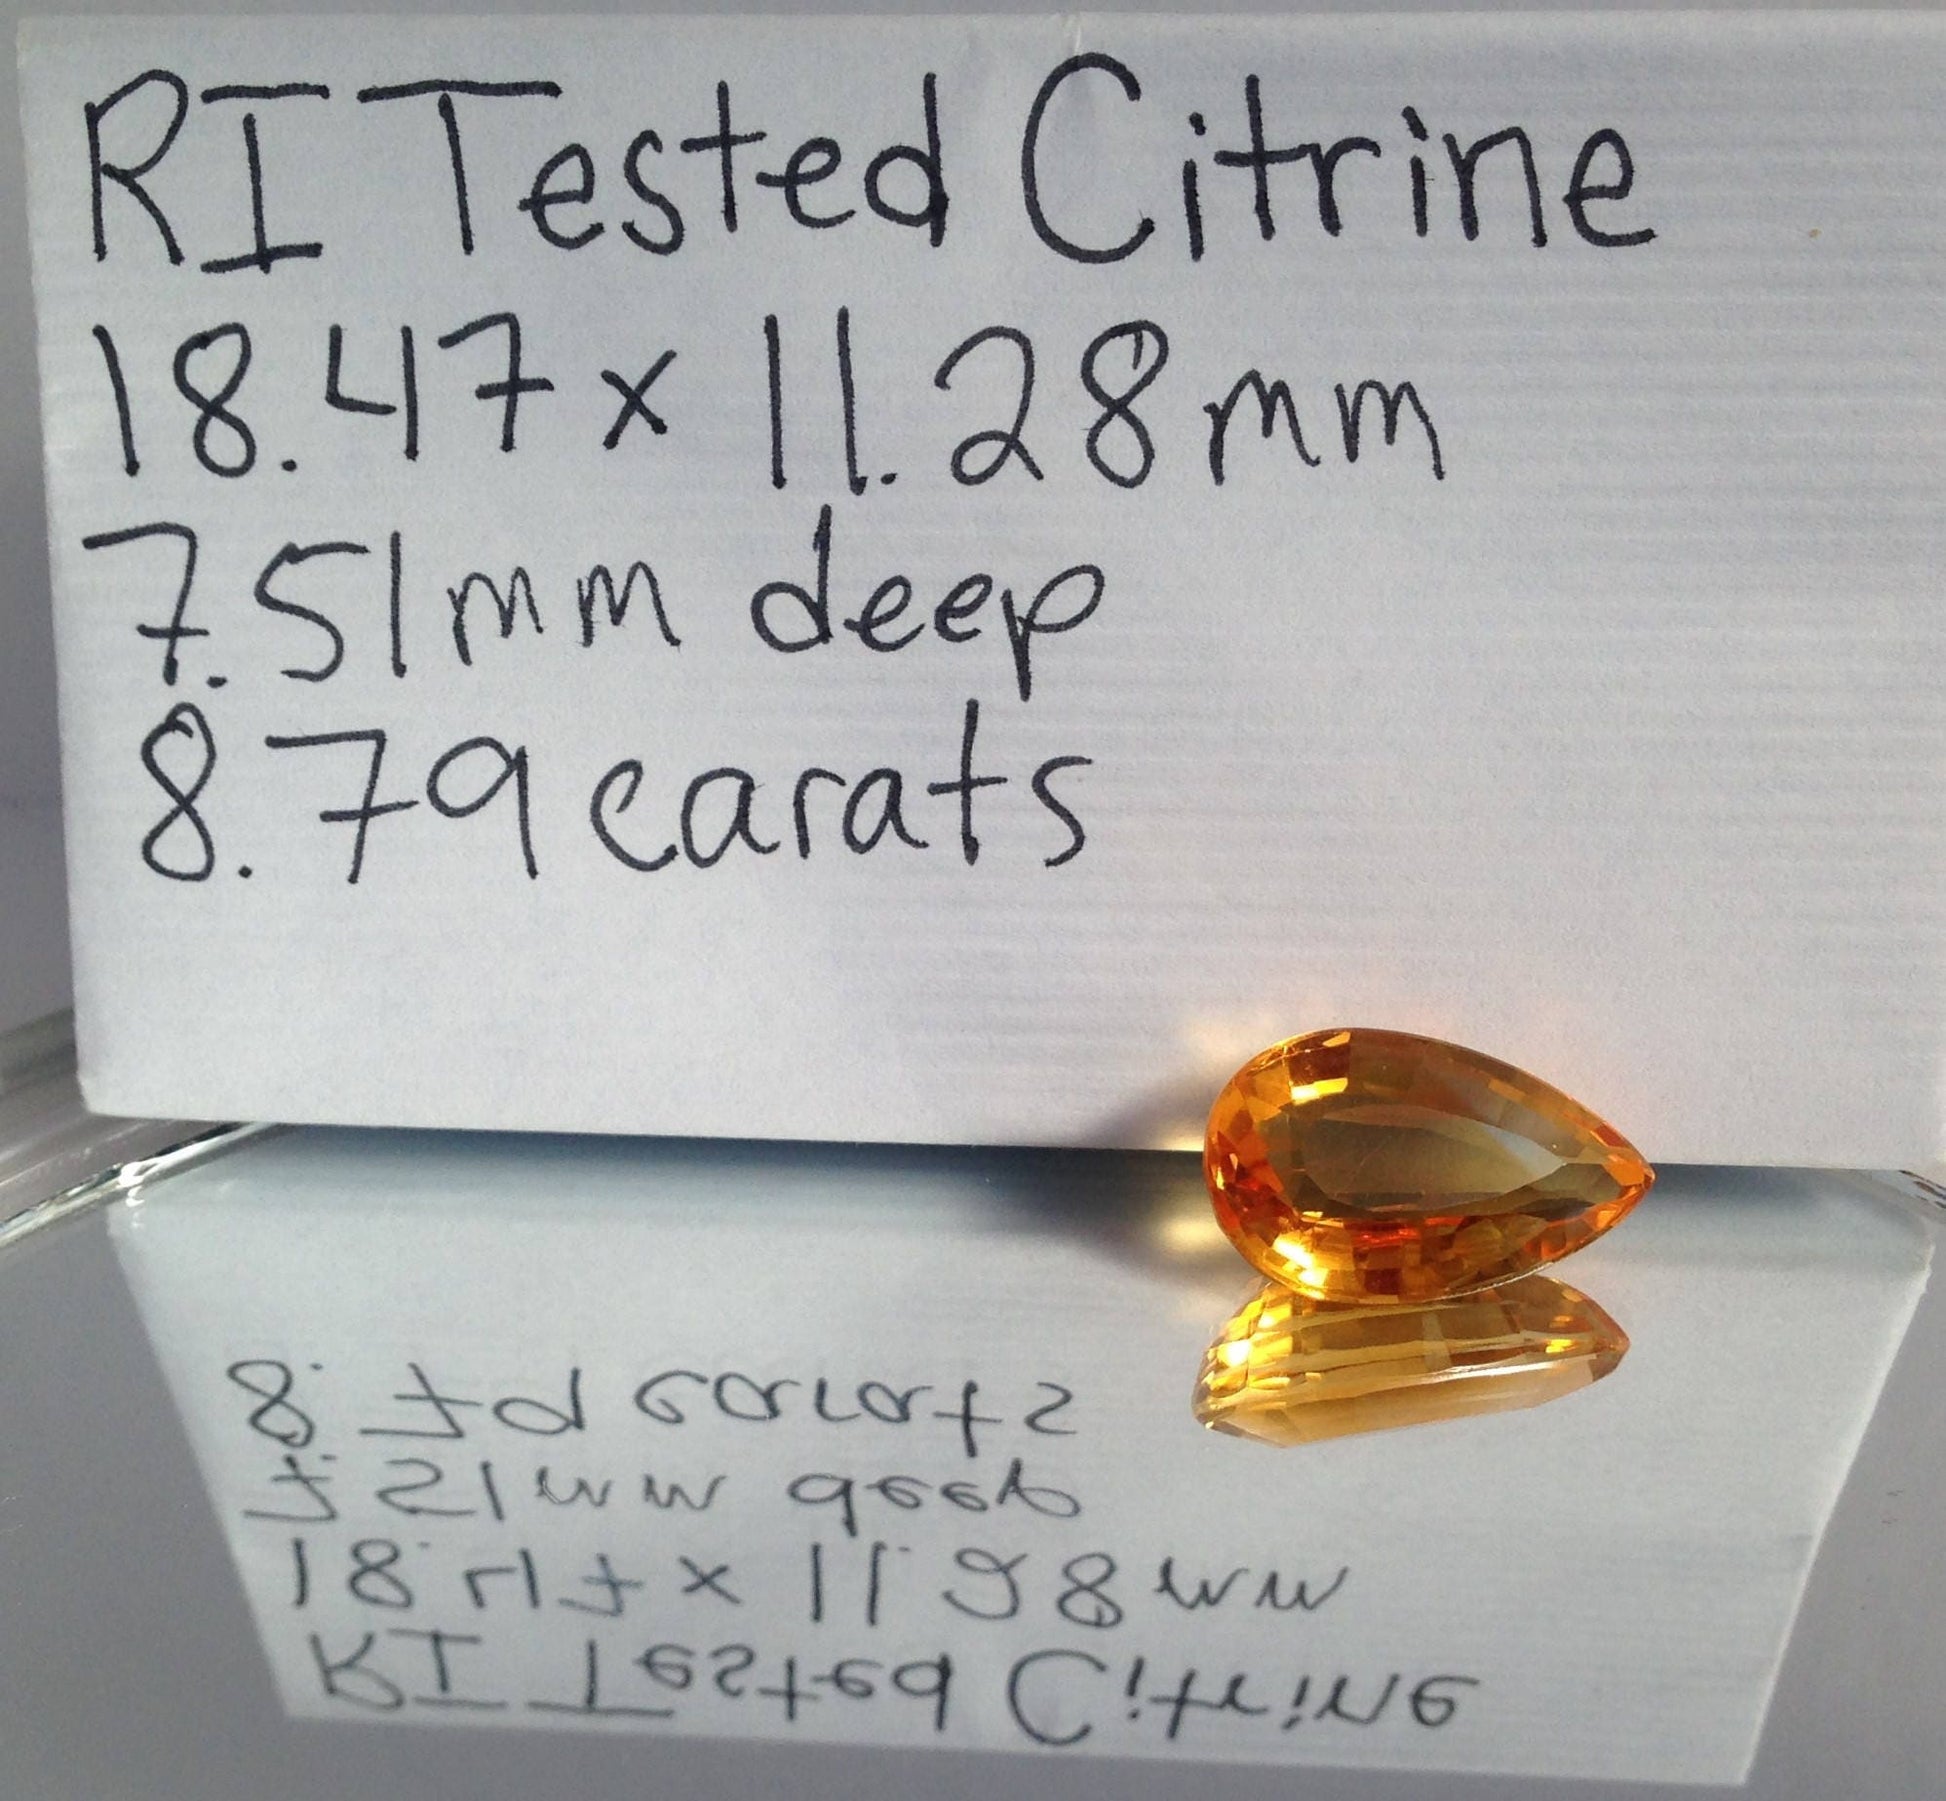 RI Tested Citrine
18.47 x 11.28mm
7.51mm deep
8.79 carats